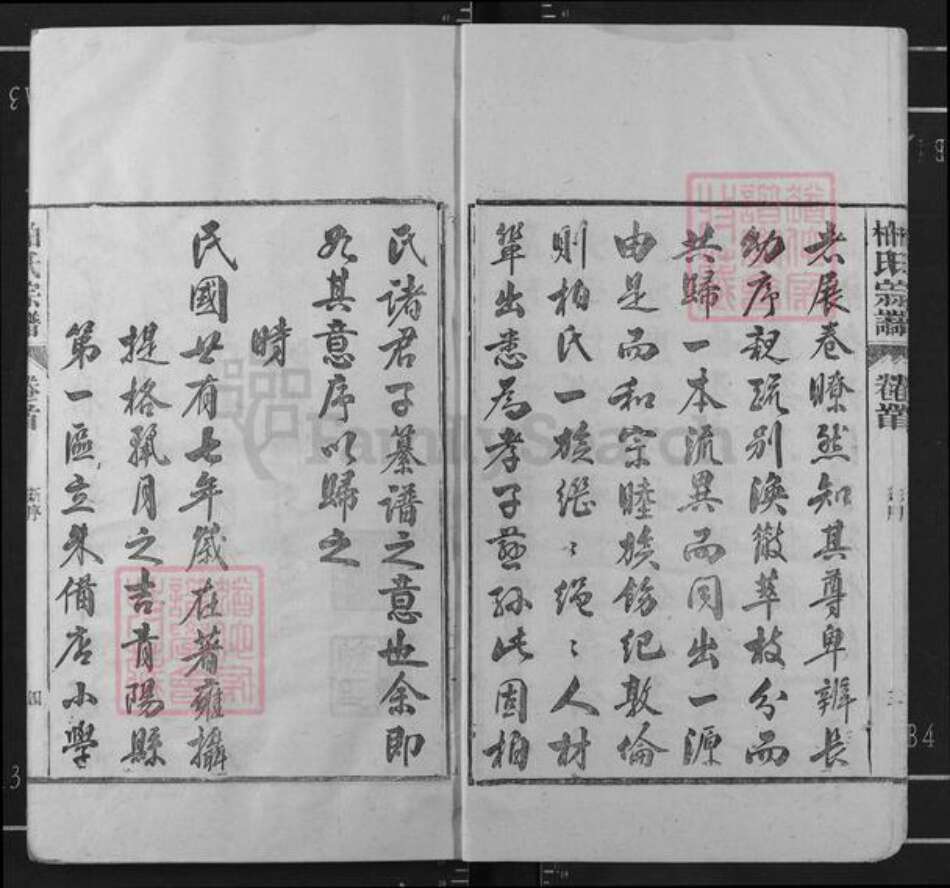 柏氏宗譜
卷首
新序
三
者展卷瞭然知其尊卑辨長
幼序親疏別渙徵萃枝分而
共歸一本流異而同出一源
由是而和宗睦族飭紀敦倫
則柏氏一族繼〻繩〻人材
輩出悉為孝子慈孫此固柏
氏諸君子纂譜之意也余即
如其意序以歸之
時
民國廿有七年歲在著雍攝
提格臘月之吉青陽縣
第一區立朱備店小學
柏氏宗譜
卷首
新序
四
FamilySearch